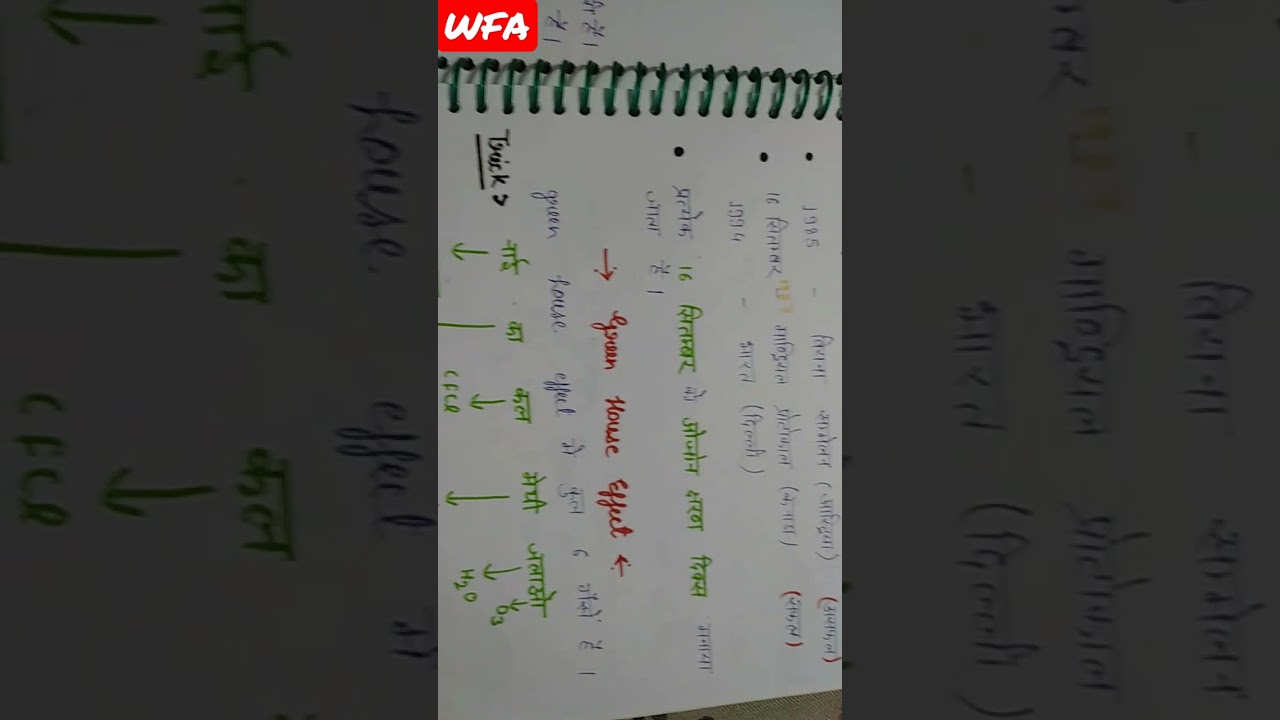 WFA
है।
है।
• 1985 - वियना सम्मेलन (आस्ट्रिया) (असफल)
• 16 सितम्बर 1987 माण्ट्रियल प्रोटोकाल (कनाडा) (सफल)
1994 - भारत (दिल्ली)
• प्रत्येक 16 सितम्बर को ओजोन क्षरण दिवस मनाया
जाता है।
→ Green House Effect ←
green house effect में कुल 6 गैसें है।
Trick > नाई का कल मेथी जलाओ
↓ ↓ ↓ ↓ ↓
CFCl H₂O O₃